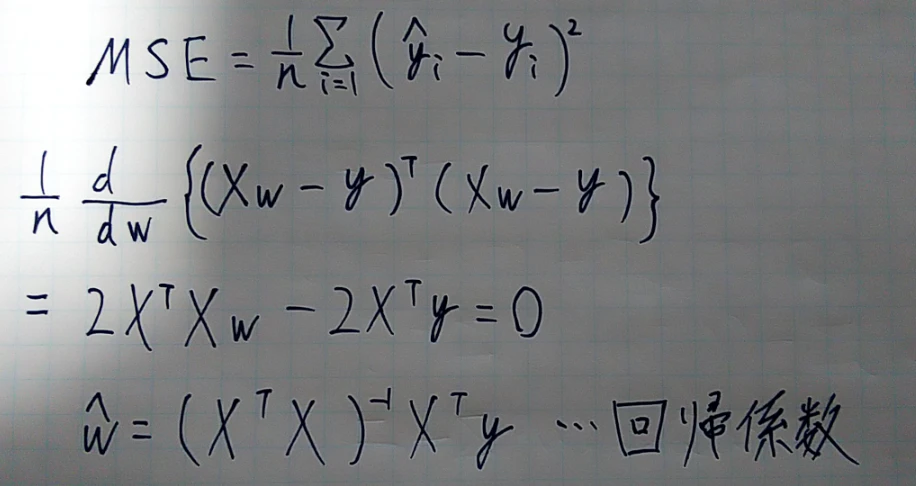 MSE = 1/n Σ_{i=1} (ŷ_i − y_i)²
1/n d/dw {(Xw − y)^T (Xw − y)}
= 2X^T Xw − 2X^T y = 0
ŵ = (X^T X)^{-1} X^T y … 回帰係数